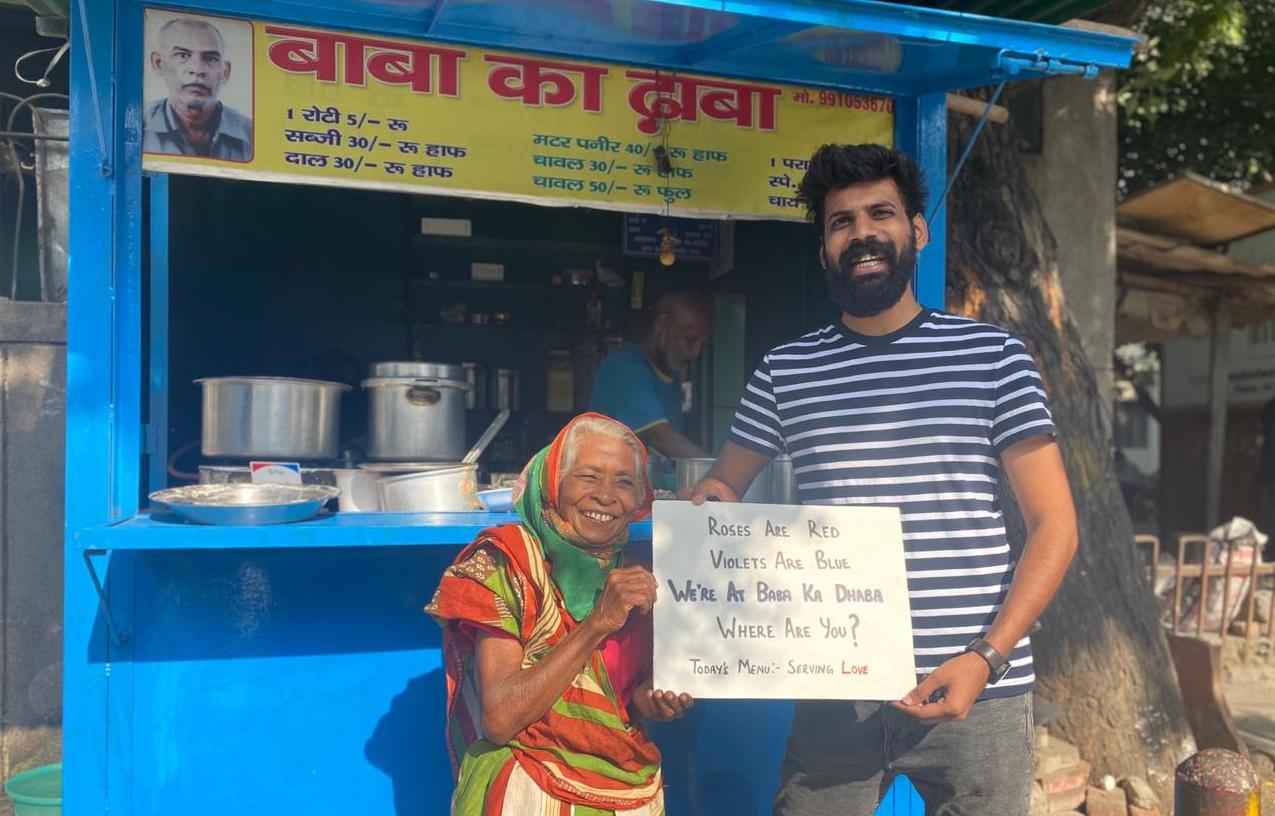 बाबा का ढाबा
मो. 991053670
1 रोटी 5/- रू
सब्जी 30/- रू हाफ
दाल 30/- रू हाफ
मटर पनीर 40/- रू हाफ
चावल 30/- रू हाफ
चावल 50/- रू फुल
1
स्पे.
चाय
Roses Are Red
Violets Are Blue
We're At Baba Ka Dhaba
Where Are You?
Today's Menu:- Serving Love